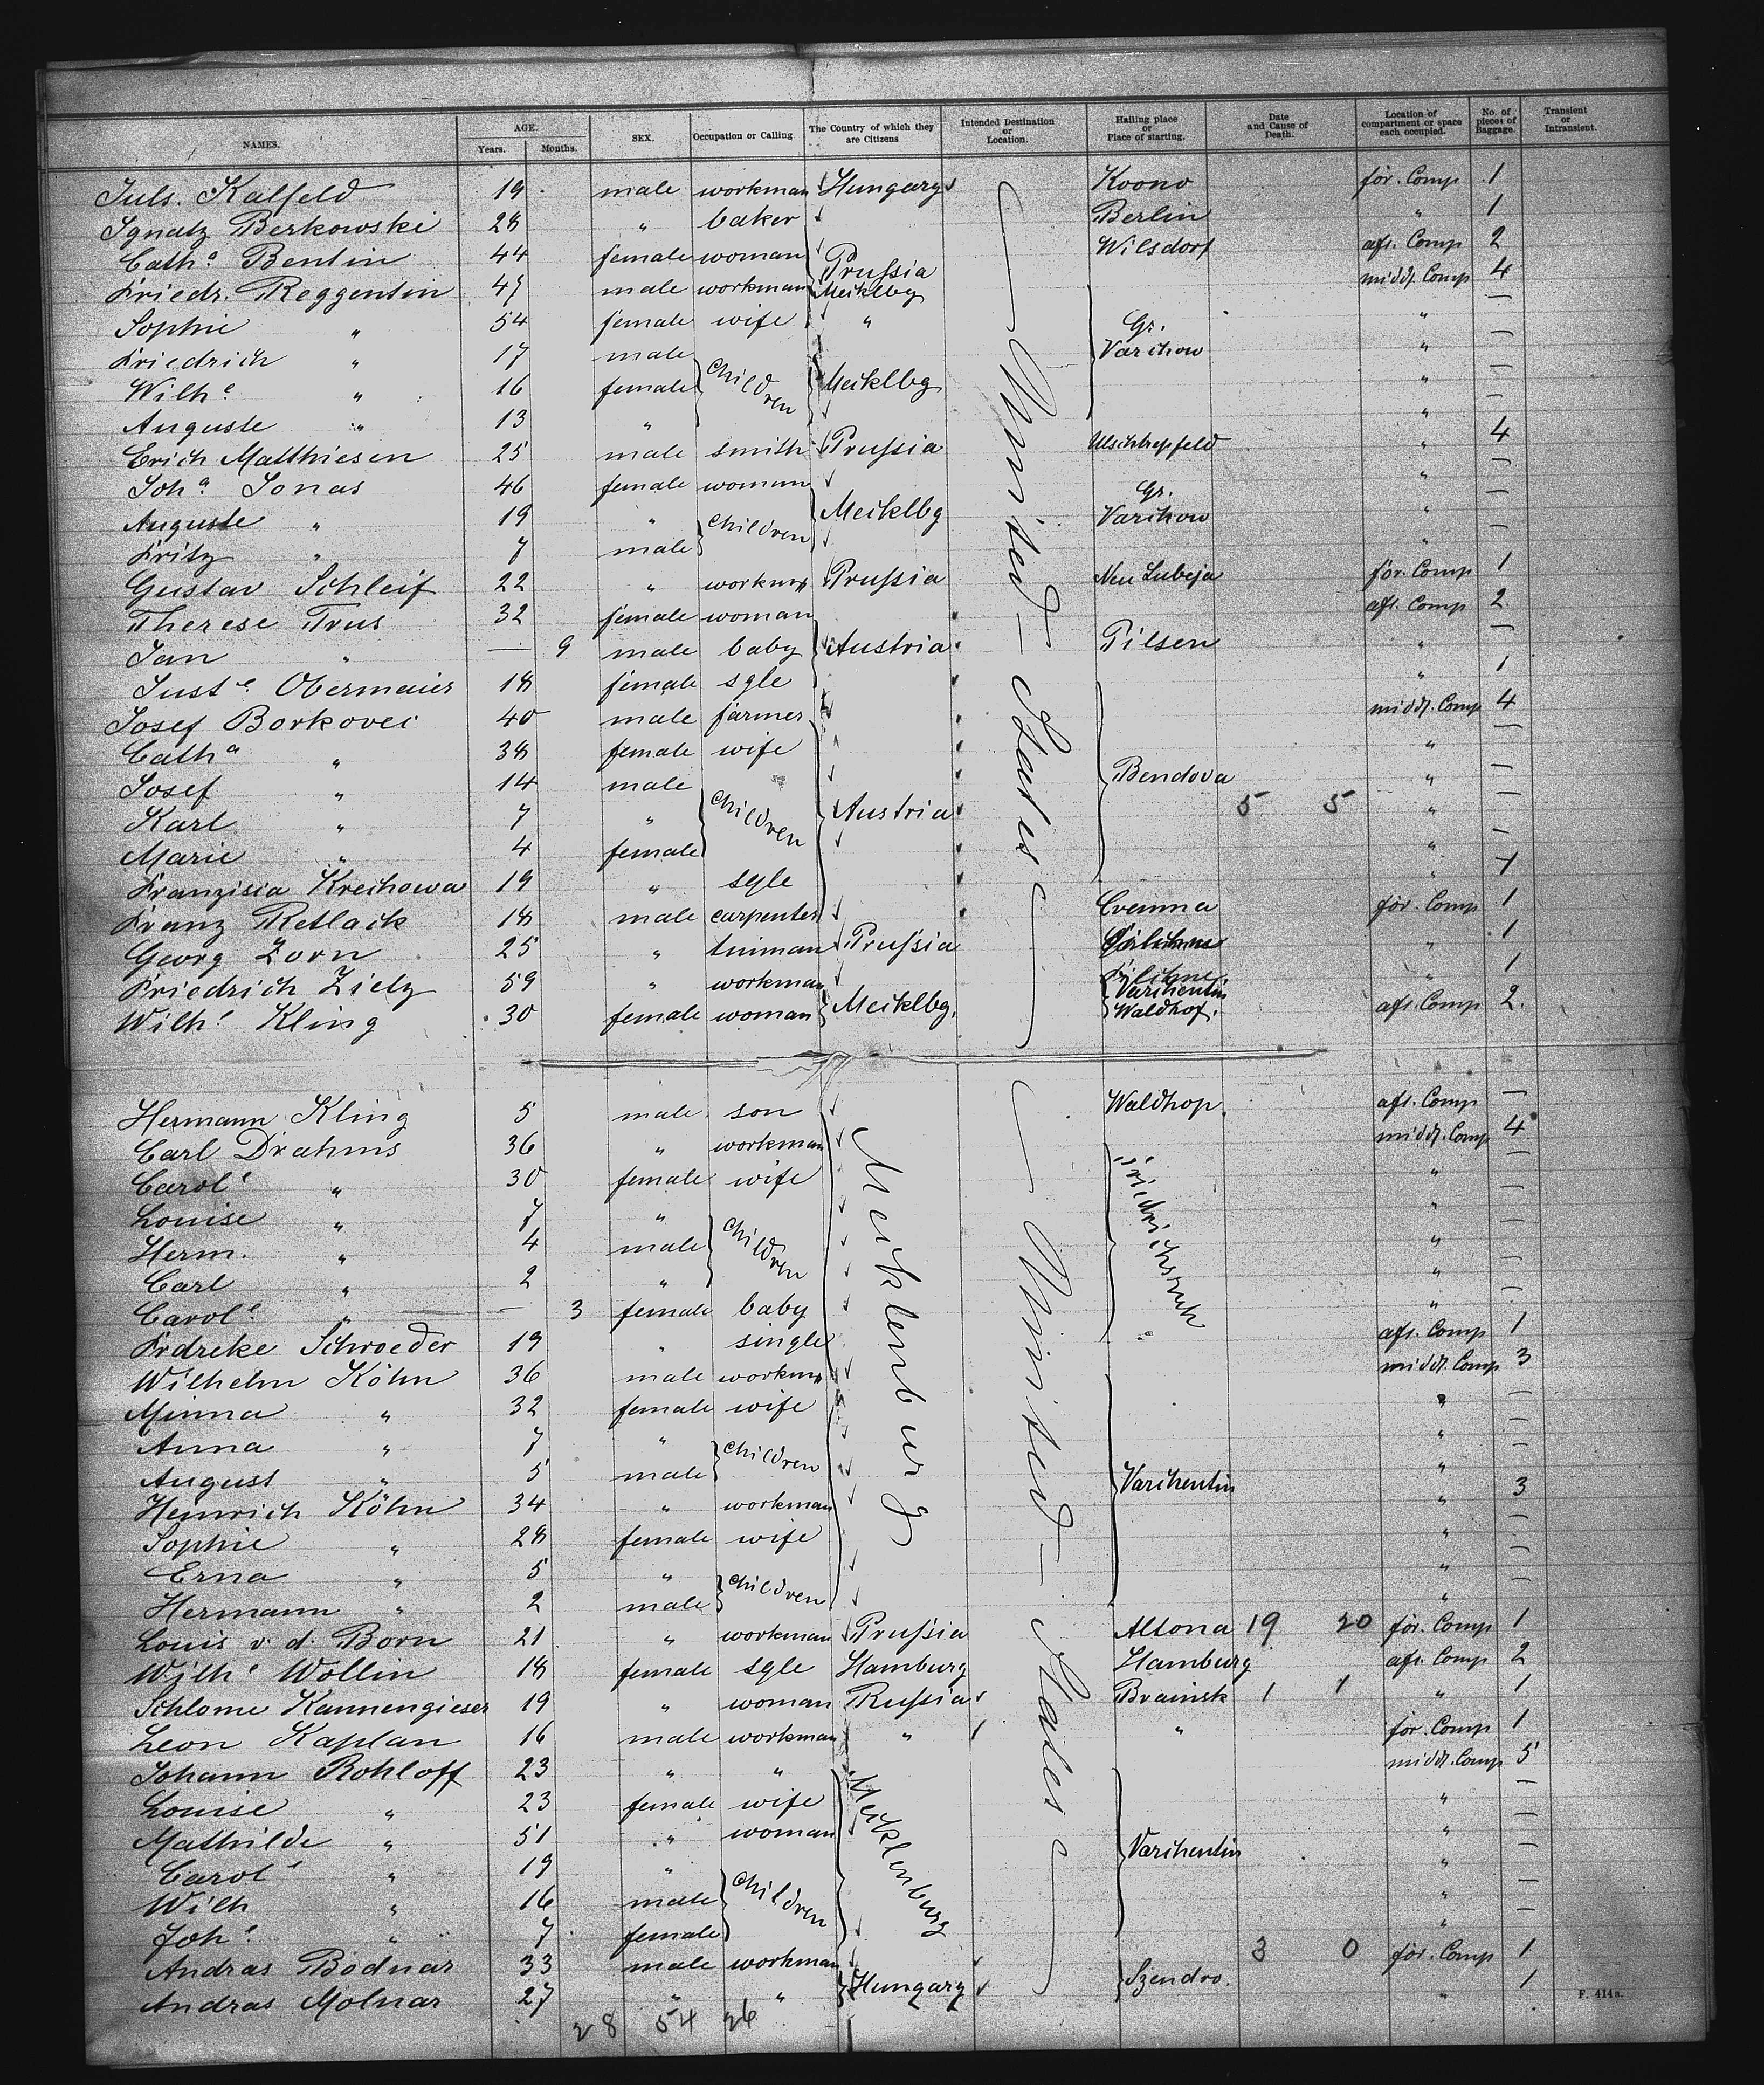 NAMES. AGE. Years. Months. SEX. Occupation or Calling. The Country of which they are Citizens Intended Destination or Location. Hailing place or Place of starting. Date and Cause of Death. Location of compartment or space each occupied. No. of pieces of Baggage. Transient or Intransient.
Juls. Kalfeld 19 male workman Hungary Koono for. Comp 1
Ignatz Berkowski 28 " baker Berlin " 1
Cath.a Bentin 44 female woman Prussia Wilsdorf aft. Comp 2
Friedr. Reggentin 47 male workman Mecklbg middl. Comp 4
Sophie " 54 female wife " Gr. Varchow " —
Friedrich " 17 male Children Mecklbg " —
Wilh.e " 16 female " —
Auguste " 13 " " —
Erich Matthiesen 25 male smith Prussia " 4
Joh.a Jonas 46 female woman Mecklbg Gr. Varchow " —
Auguste " 19 " Children " —
Fritz " 7 male " —
Gustav Schleif 22 " workman Prussia Neu Lubeja for. Comp 1
Therese Trus 32 female woman Austria Pilsen aft. Comp 2
Jan " — 9 male baby " —
Just.e Obermaier 18 female sgle " 1
Josef Borkovec 40 male farmer Austria Bendova middl. Comp 4
Cath.a " 38 female wife " —
Josef " 14 male Children " —
Karl " 7 " 5 5 " —
Marie " 4 female " —
Franzisca Krechowa 19 " sgle " 1
Franz Retlack 18 male carpenter Prussia for. Comp 1
Georg Zorn 25 " tinman " 1
Friedrich Zielz 59 " workman Mecklbg. Varchentin " 1
Wilh.e Kling 30 female woman Waldhof. aft. Comp 2.
— United States —
Hermann Kling 5 male son Mecklenburg Waldhop. aft. Comp —
Carl Drahms 36 " workman middl. Comp 4
Carol.e " 30 female wife " —
Louise " 7 " Children " —
Herm. " 4 male " —
Carl " 2 " " —
Carol.e " — 3 female baby " —
Frdreke Schroeder 19 " single aft. Comp 1
Wilhelm Köhn 36 male workman Varchentin middl. Comp 3
Minna " 32 female wife " —
Anna " 7 " Children " —
August " 5 male " —
Heinrich Köhn 34 " workman " 3
Sophie " 28 female wife " —
Erna " 5 " Children " —
Hermann " 2 male " —
Louis v. d. Born 21 " workman Prussia Altona 19 20 for. Comp 1
Wilh.e Wollin 18 female sgle Hamburg Hamburg aft. Comp 2
Schlome Kannengieser 19 " woman Russia Brainsk 1 1 " 1
Leon Kaplan 16 male workman " " for. Comp 1
Johann Rohloff 23 " " Mecklenburg Varchentin middl. Comp 5
Louise " 23 female wife " —
Mathilde " 51 " woman " —
Carol.e " 19 " Children " —
Wilh " 16 male " —
Joh.e " 7 female " —
Andras Bodnar 33 male workman Hungary Szendro. 3 0 for. Comp 1
Andras Molnar 27 " " " 1
— United States —
28 54 26
F. 414a.